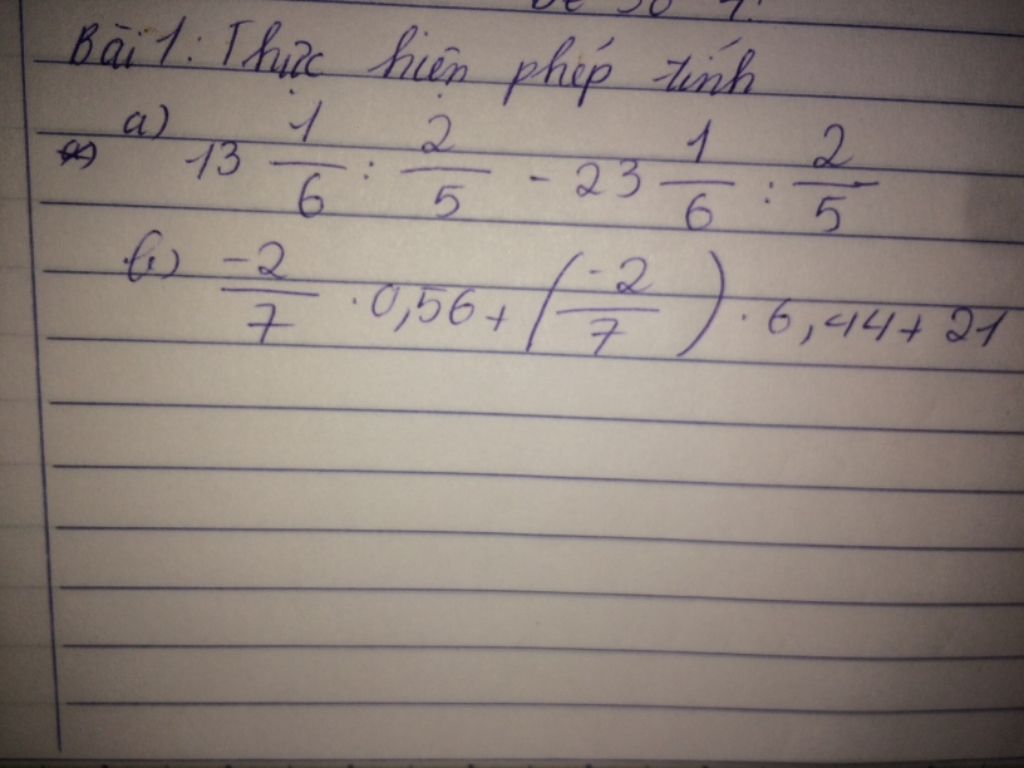 Bài 1: Thực hiện phép tính
a) 13 1/6 : 2/5 - 23 1/6 : 2/5
b) -2/7 . 0,56 + (-2/7) . 6,44 + 21